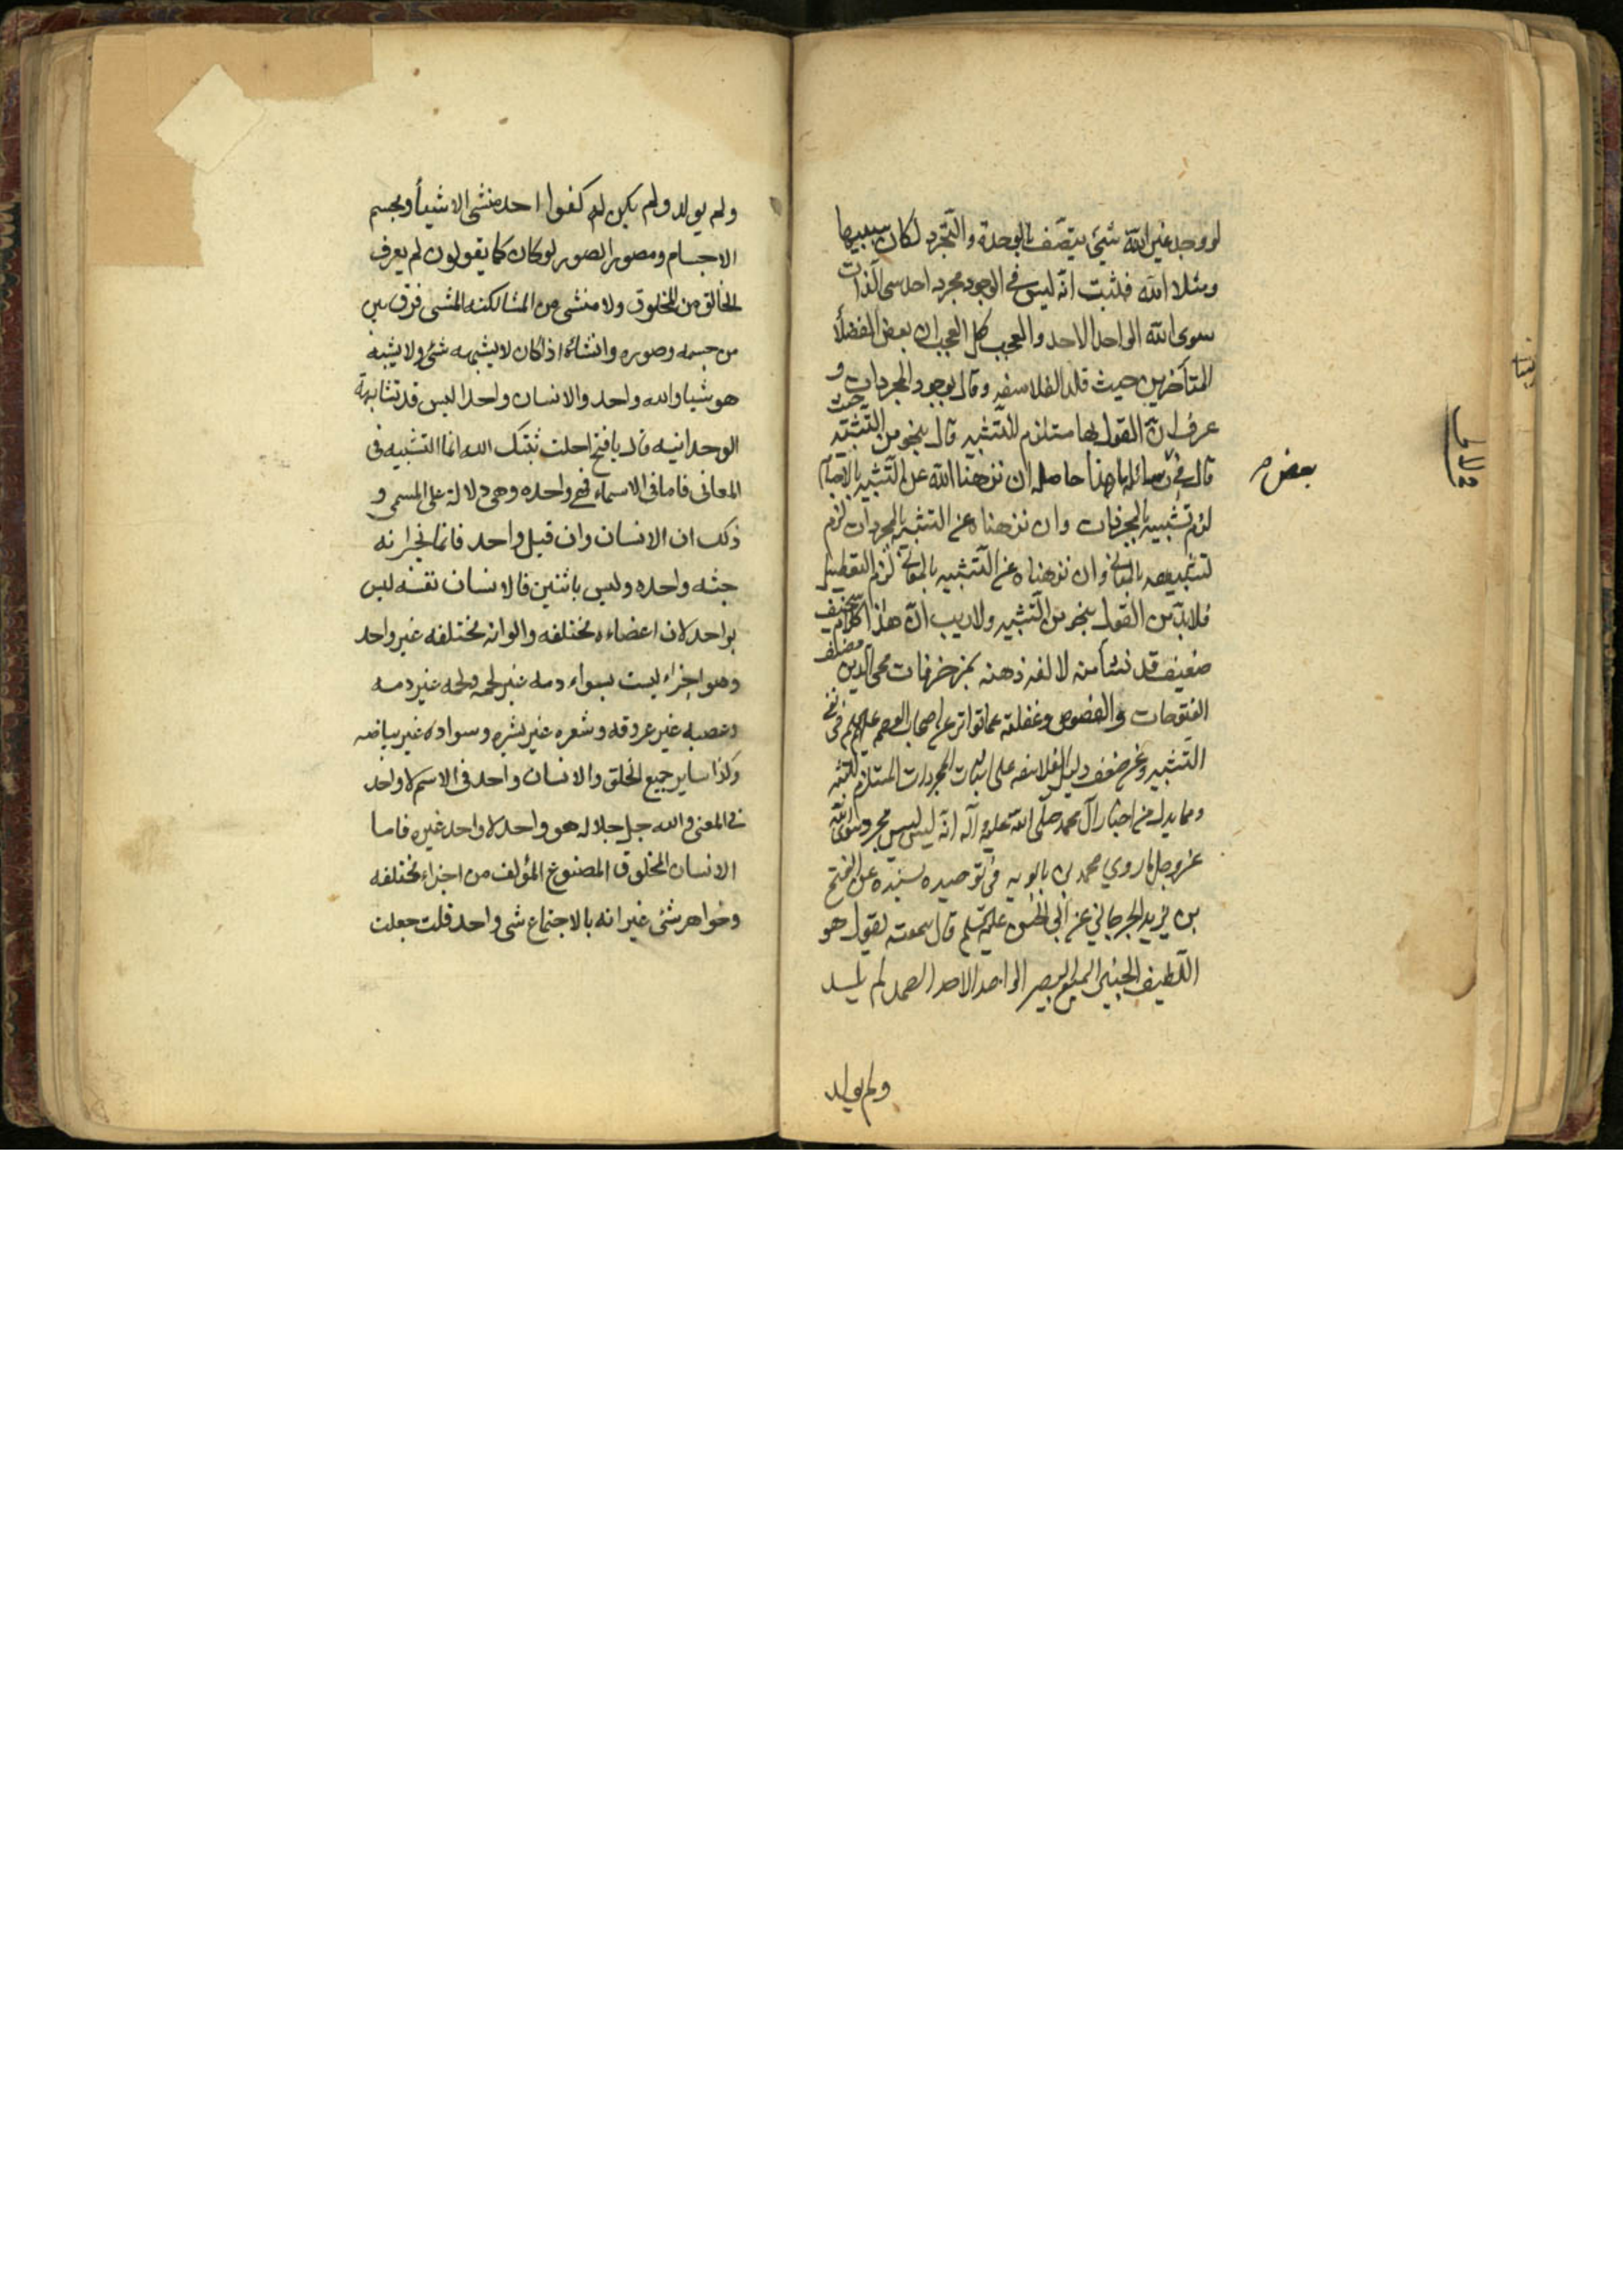 لو وجد غير الله شيئ يتصف بالوحدة والتجرد لكان شبيها
ومثلا لله فثبت انه ليس في الوجود مجرد احدى الذات
سوى الله الواحد الاحد والعجب كل العجب ان بعض الفضلأ
المتأخرين حيث قلد الفلاسفه وقال بوجود المجردات و
عرف ان القول بها مستلزم للتشبيه قال بنحو من التشبيه حيث
قال في بعض رسائله ما هذا حاصله ان نزهنا الله عن التشبيه بالاجسام
بعض
لزم تشبيهه بالمجردات وان نزهناه عن التشبيه بالمجردات لزم
تشبيهه بالمعاني وان نزهناه عن التشبيه بالمعاني لزم التعطيل
فلابد من القول بنحو من التشبيه ولا ريب ان هذا كلام سخيف
ضعيف قد نشأ من لالفه ذهنه بمزخرفات محي الدين مصنف
الفتوحات والفصوص وغفلته عما تواتر عن اصحاب العصمه عليهم في نفي
التشبيه وعن ضعف دليل الفلاسفه على اثبات المجردات المستلزم للتشبيه
ومما يدل من اخبار آل محمد صلى الله عليه وآله انه ليس ليس مجرد سوى الله
عز وجل ما روي محمد بن بابويه في توحيده بسنده عن الفتح
بن يزيد الجرجاني عن ابي الحسن عليه السلم قال سمعته يقول هو
اللطيف الخبير السميع البصير الواحد الاحد الصمد لم يلد
ولم يولد
ولم يولد ولم يكن له كفوا احد منشئ الاشيأ ومجسم
الاجسام ومصور الصور لو كان كما يقولون لم يعرف
الخالق من المخلوق ولا منشئ من المنشا لكنه المنشى فرق بين
من جسمه وصوره وانشائه اذ كان لا يشبهه شئ ولا يشبه
هو شيا والله واحد والانسان واحد اليس قد تشابهة
الوحدانيه قال يا فتح احلت ثبتك الله انما التشبيه في
المعانى فاما فى الاسماء فهي واحده وهي دلالة على المسمى و
ذلك ان الانسان وان قيل واحد فانما يخبر انه
جثه واحده وليس باثنين فالانسان نفسه ليس
بواحد لان اعضاءه مختلفه والوانه مختلفه غير واحد
وهو اجزاء ليست بسواء دمه غير لحمه ولحمه غير دمه
وعصبه غير عروقه وشعره غير بشره وسواده غير بياضه
وكذا ساير جميع الخلق والانسان واحد في الاسم لا واحد
في المعنى والله جل جلاله هو واحد لا واحد غيره فاما
الانسان المخلوق المصنوع المؤلف من اجزاء مختلفه
وجواهر شتى غير انه بالاجتماع شى واحد قلت جعلت